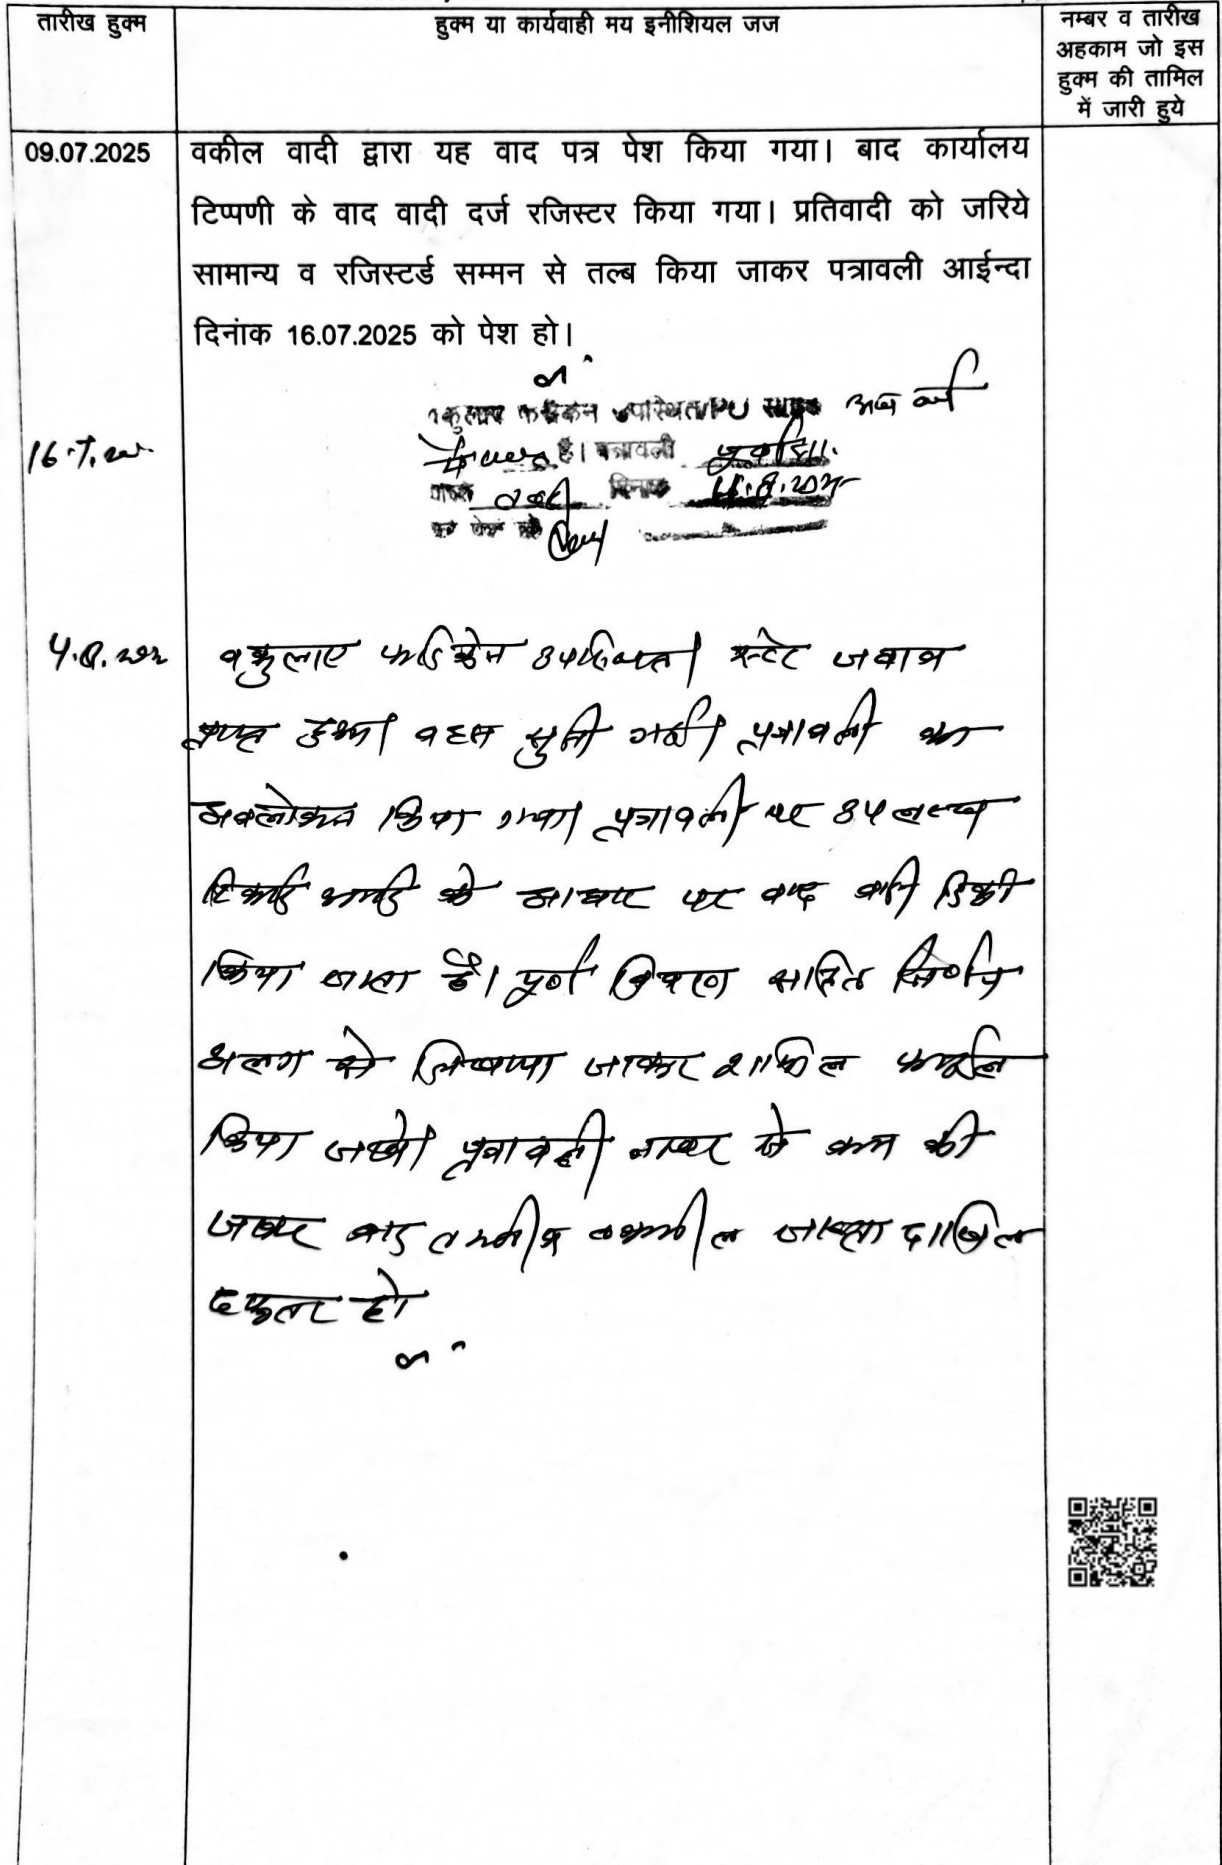 तारीख हुक्म
हुक्म या कार्यवाही मय इनीशियल जज
नम्बर व तारीख
अहकाम जो इस
हुक्म की तामिल
में जारी हुये
09.07.2025
वकील वादी द्वारा यह वाद पत्र पेश किया गया। बाद कार्यालय
टिप्पणी के वाद वादी दर्ज रजिस्टर किया गया। प्रतिवादी को जरिये
सामान्य व रजिस्टर्ड सम्मन से तल्ब किया जाकर पत्रावली आईन्दा
दिनांक 16.07.2025 को पेश हो।
उपस्थित
है। पत्रावली
दिनांक
वकुलाए फरिकेन उपस्थित। स्टेट जवाब
प्राप्त हुआ। बहस सुनी गई। पत्रावली का
अवलोकन किया गया। पत्रावली पर उपलब्ध
रिकार्ड आदि के आधार पर वाद वादी डिक्री
किया जाता है। पूर्ण विवरण सहित निर्णय
अलग से लिखाया जाकर शामिल
किया जावे। पत्रावली नम्बर से कम की
जाकर बाद जाब्ता दाखिल
दफ्तर हो।